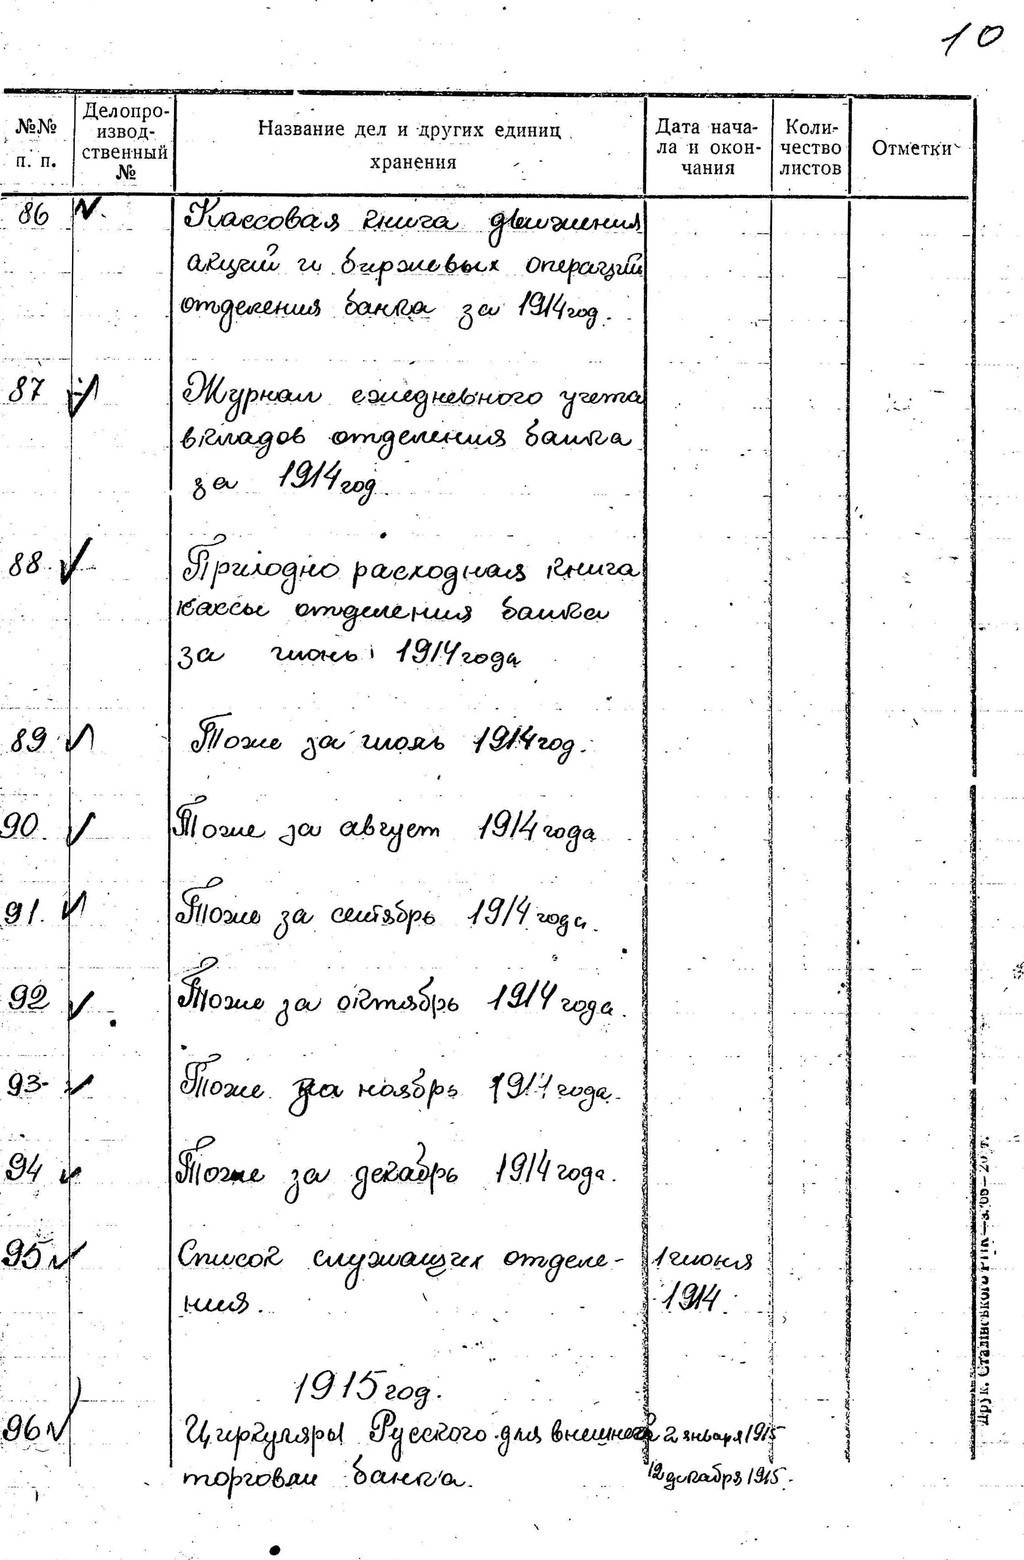 10
№№ п. п.
Делопро-
извод-
ственный
№
Название дел и других единиц
хранения
Дата нача-
ла и окон-
чания
Коли-
чество
листов
Отметки
86 Кассовая книга движения
акций и биржевых операций
отделения банка за 1914 год.
87 Журнал ежедневного учета
вкладов отделения банка
за 1914 год.
88 Приходно расходная книга
кассы отделения банка
за июнь 1914 года
89 Тоже за июль 1914 год.
90. Тоже за август 1914 года
91. Тоже за сентябрь 1914 года.
92 Тоже за октябрь 1914 года.
93- Тоже за ноябрь 1914 года.
94 Тоже за декабрь 1914 года.
95 Список служащих отделе- 1 июня
ния. 1914.
1915 год.
96 Циркуляры Русского для внешней 2 января 1915
торговли банка. 12 декабря 1915.
Друк. Сталінського